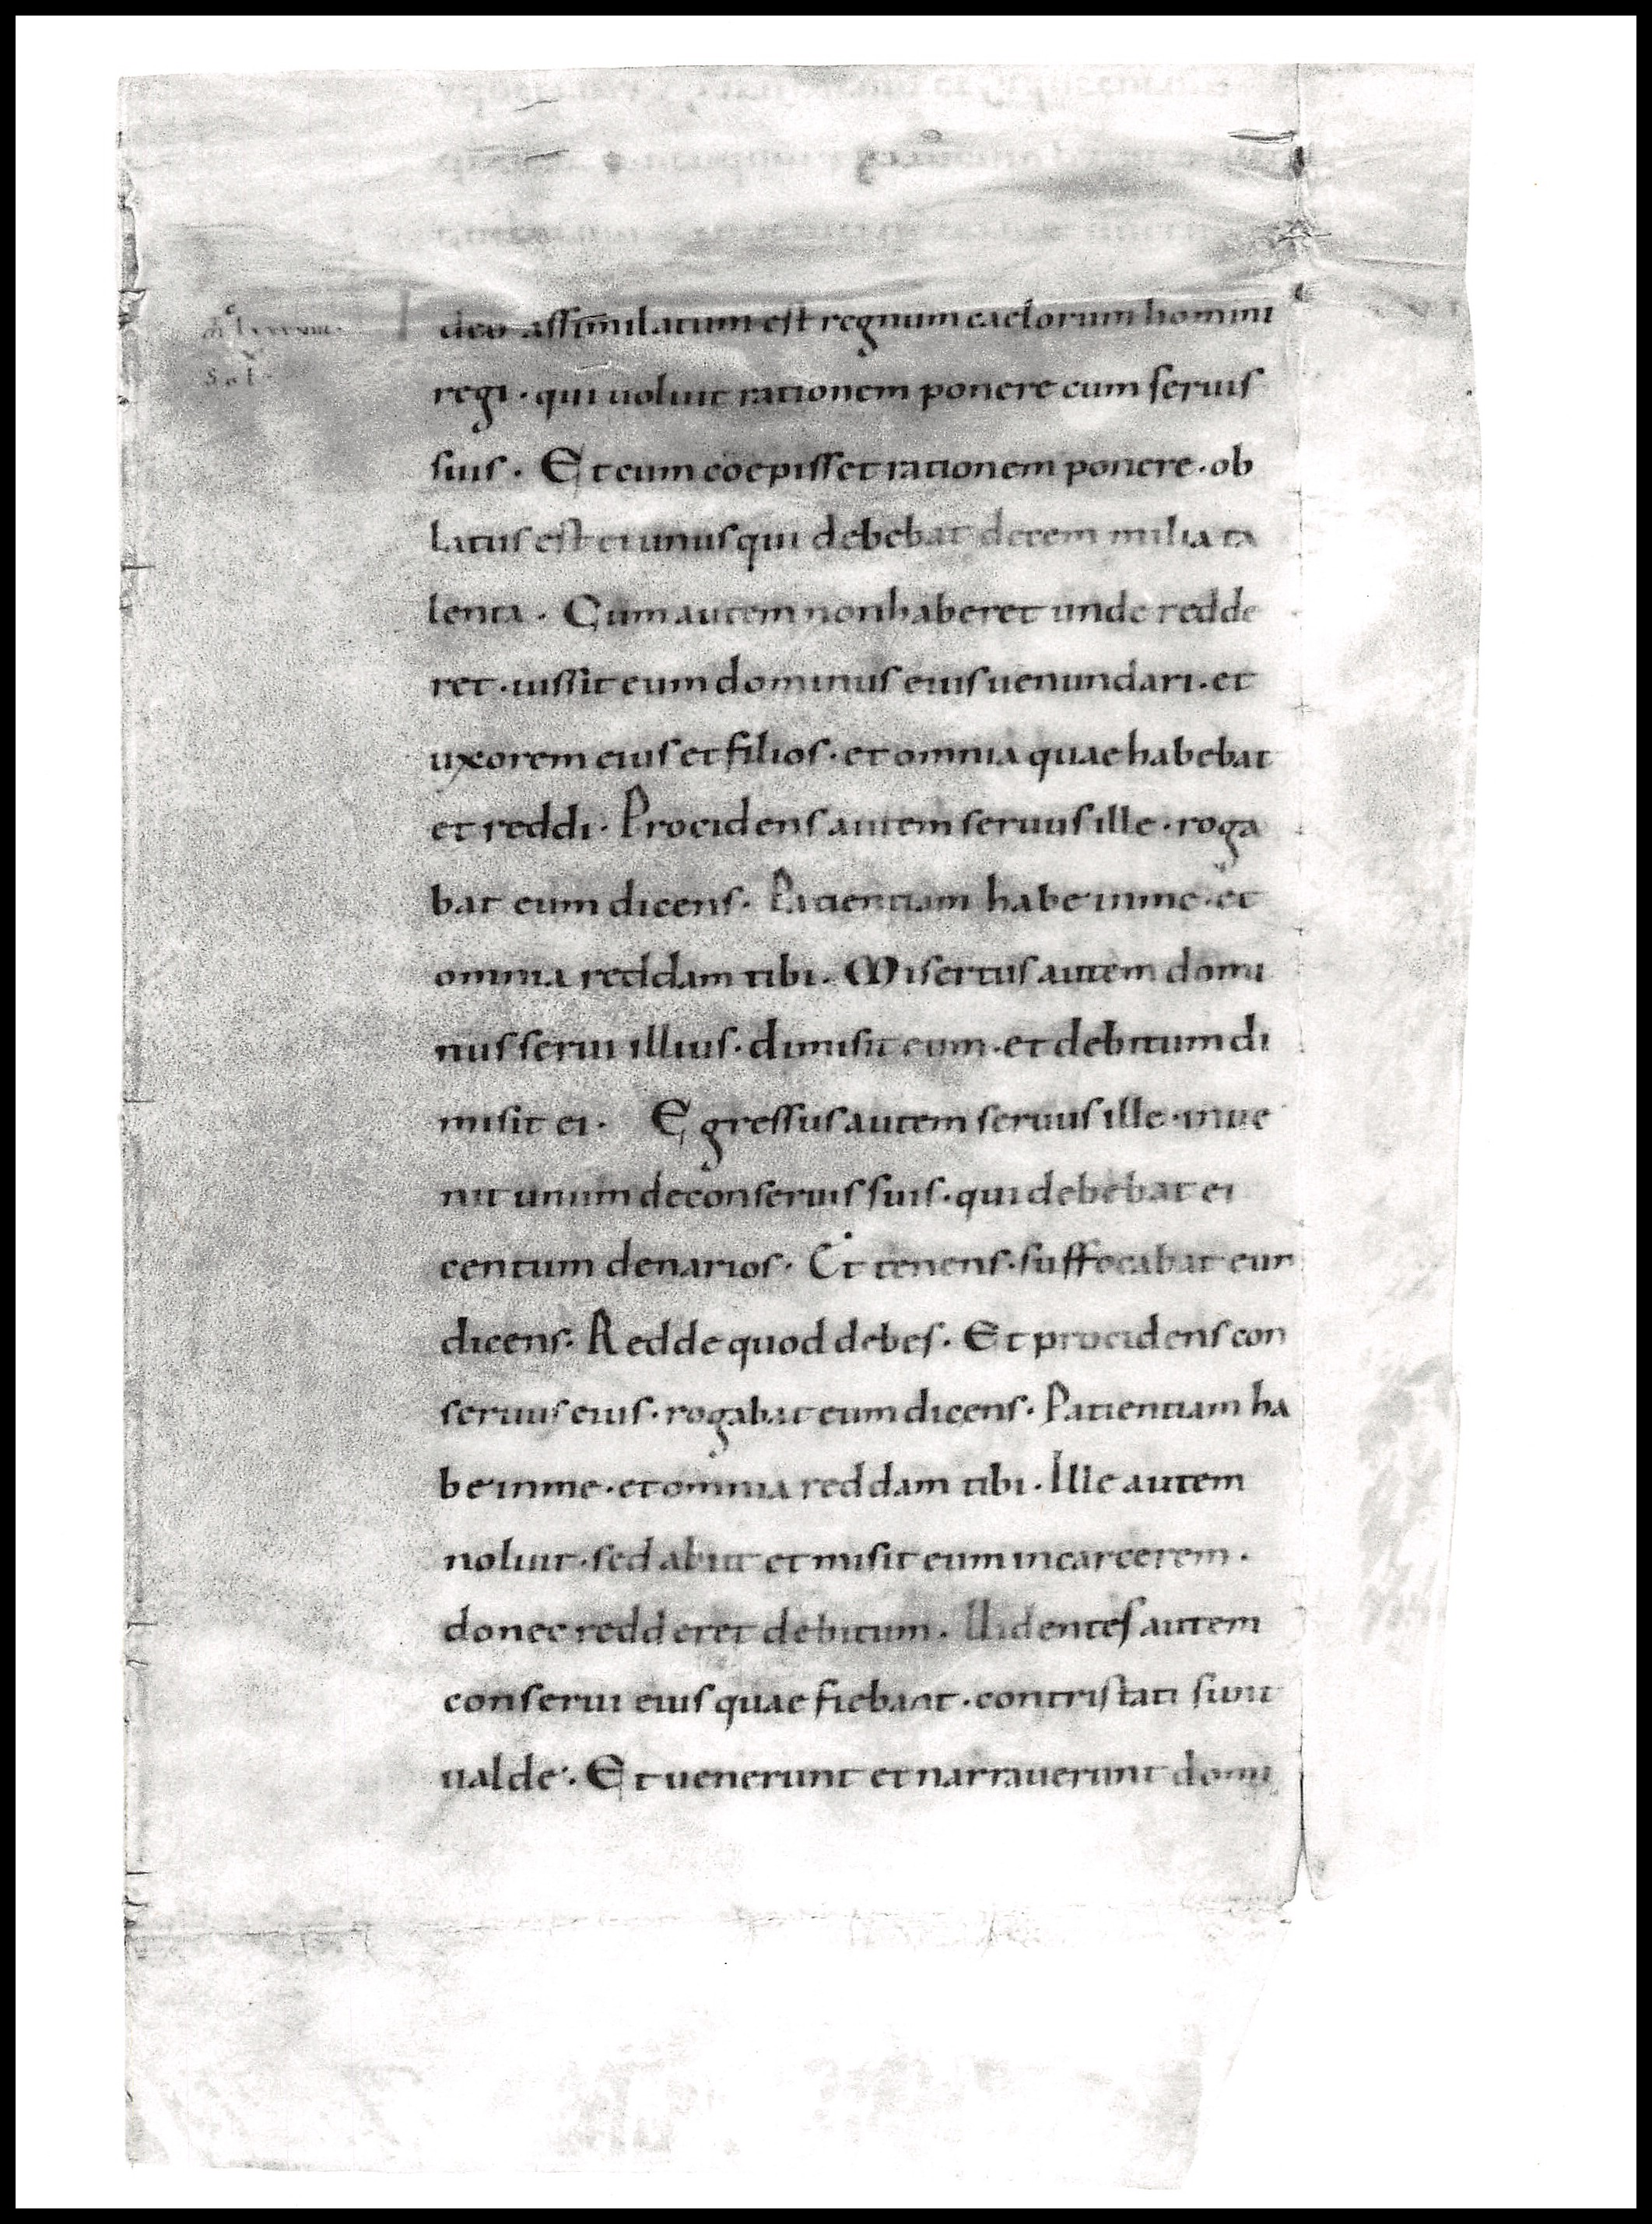 Ideo assimilatum est regnum caelorum homini
regi · qui uoluit rationem ponere cum seruis
suis · Et cum coepisset rationem ponere · ob
latus est ei unus qui debebat decem milia ta
lenta · Cum autem non haberet unde redde
ret · iussit eum dominus eius uenundari · et
uxorem eius et filios · et omnia quae habebat
et reddi · Procidens autem seruus ille · roga
bat eum dicens · Patientiam habe in me · et
omnia reddam tibi · Misertus autem domi
nus serui illius · dimisit eum · et debitum di
misit ei · Egressus autem seruus ille · inue
nit unum de conseruis suis · qui debebat ei
centum denarios · Et tenens · suffocabat eum
dicens · Redde quod debes · Et procidens con
seruus eius · rogabat eum dicens · Patientiam ha
be in me · et omnia reddam tibi · Ille autem
noluit · sed abiit et misit eum in carcerem ·
donec redderet debitum · Uidentes autem
conserui eius quae fiebant · contristati sunt
ualde · Et uenerunt et narrauerunt domi